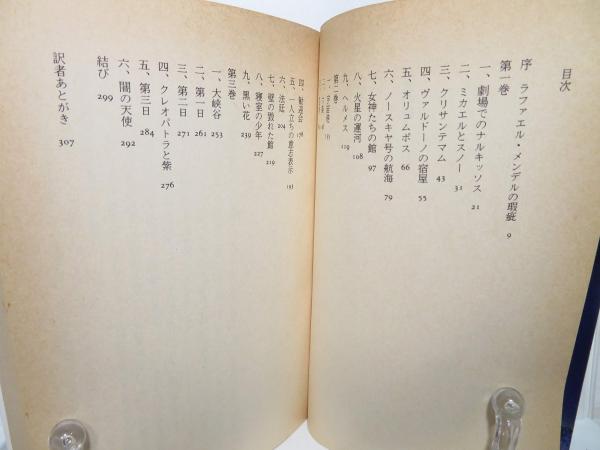 目次
序 ラファエル・メンデルの瑕疵 9
第一巻
一、劇場でのナルキッソス 21
二、ミカエルとスノー 31
三、クリサンテマム 43
四、ヴァルドーノの宿屋 55
五、オリュムポス 66
六、ノースキヤ号の航海 79
七、女神たちの館 97
八、火星の運河 108
九、ヘルメス 119
第二巻
四、歓迎会 178
五、一人立ちの意志表示 193
六、法廷 204
七、壁の毀れた館 219
八、寝室の少年 227
九、黒い花 239
第三巻
一、大峡谷 253
二、第一日 261
三、第二日 271
四、クレオパトラと紫 276
五、第三日 284
六、闇の天使 292
結び 299
訳者あとがき 307